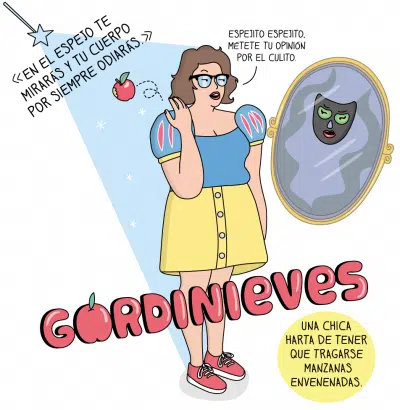 «EN EL ESPEJO TE
MIRARÁS Y TU CUERPO
POR SIEMPRE ODIARÁS.»
ESPEJITO ESPEJITO,
METETE TU OPINIÓN
POR EL CULITO.
GORDINIEVES
UNA CHICA
HARTA DE TENER
QUE TRAGARSE
MANZANAS
ENVENENADAS.